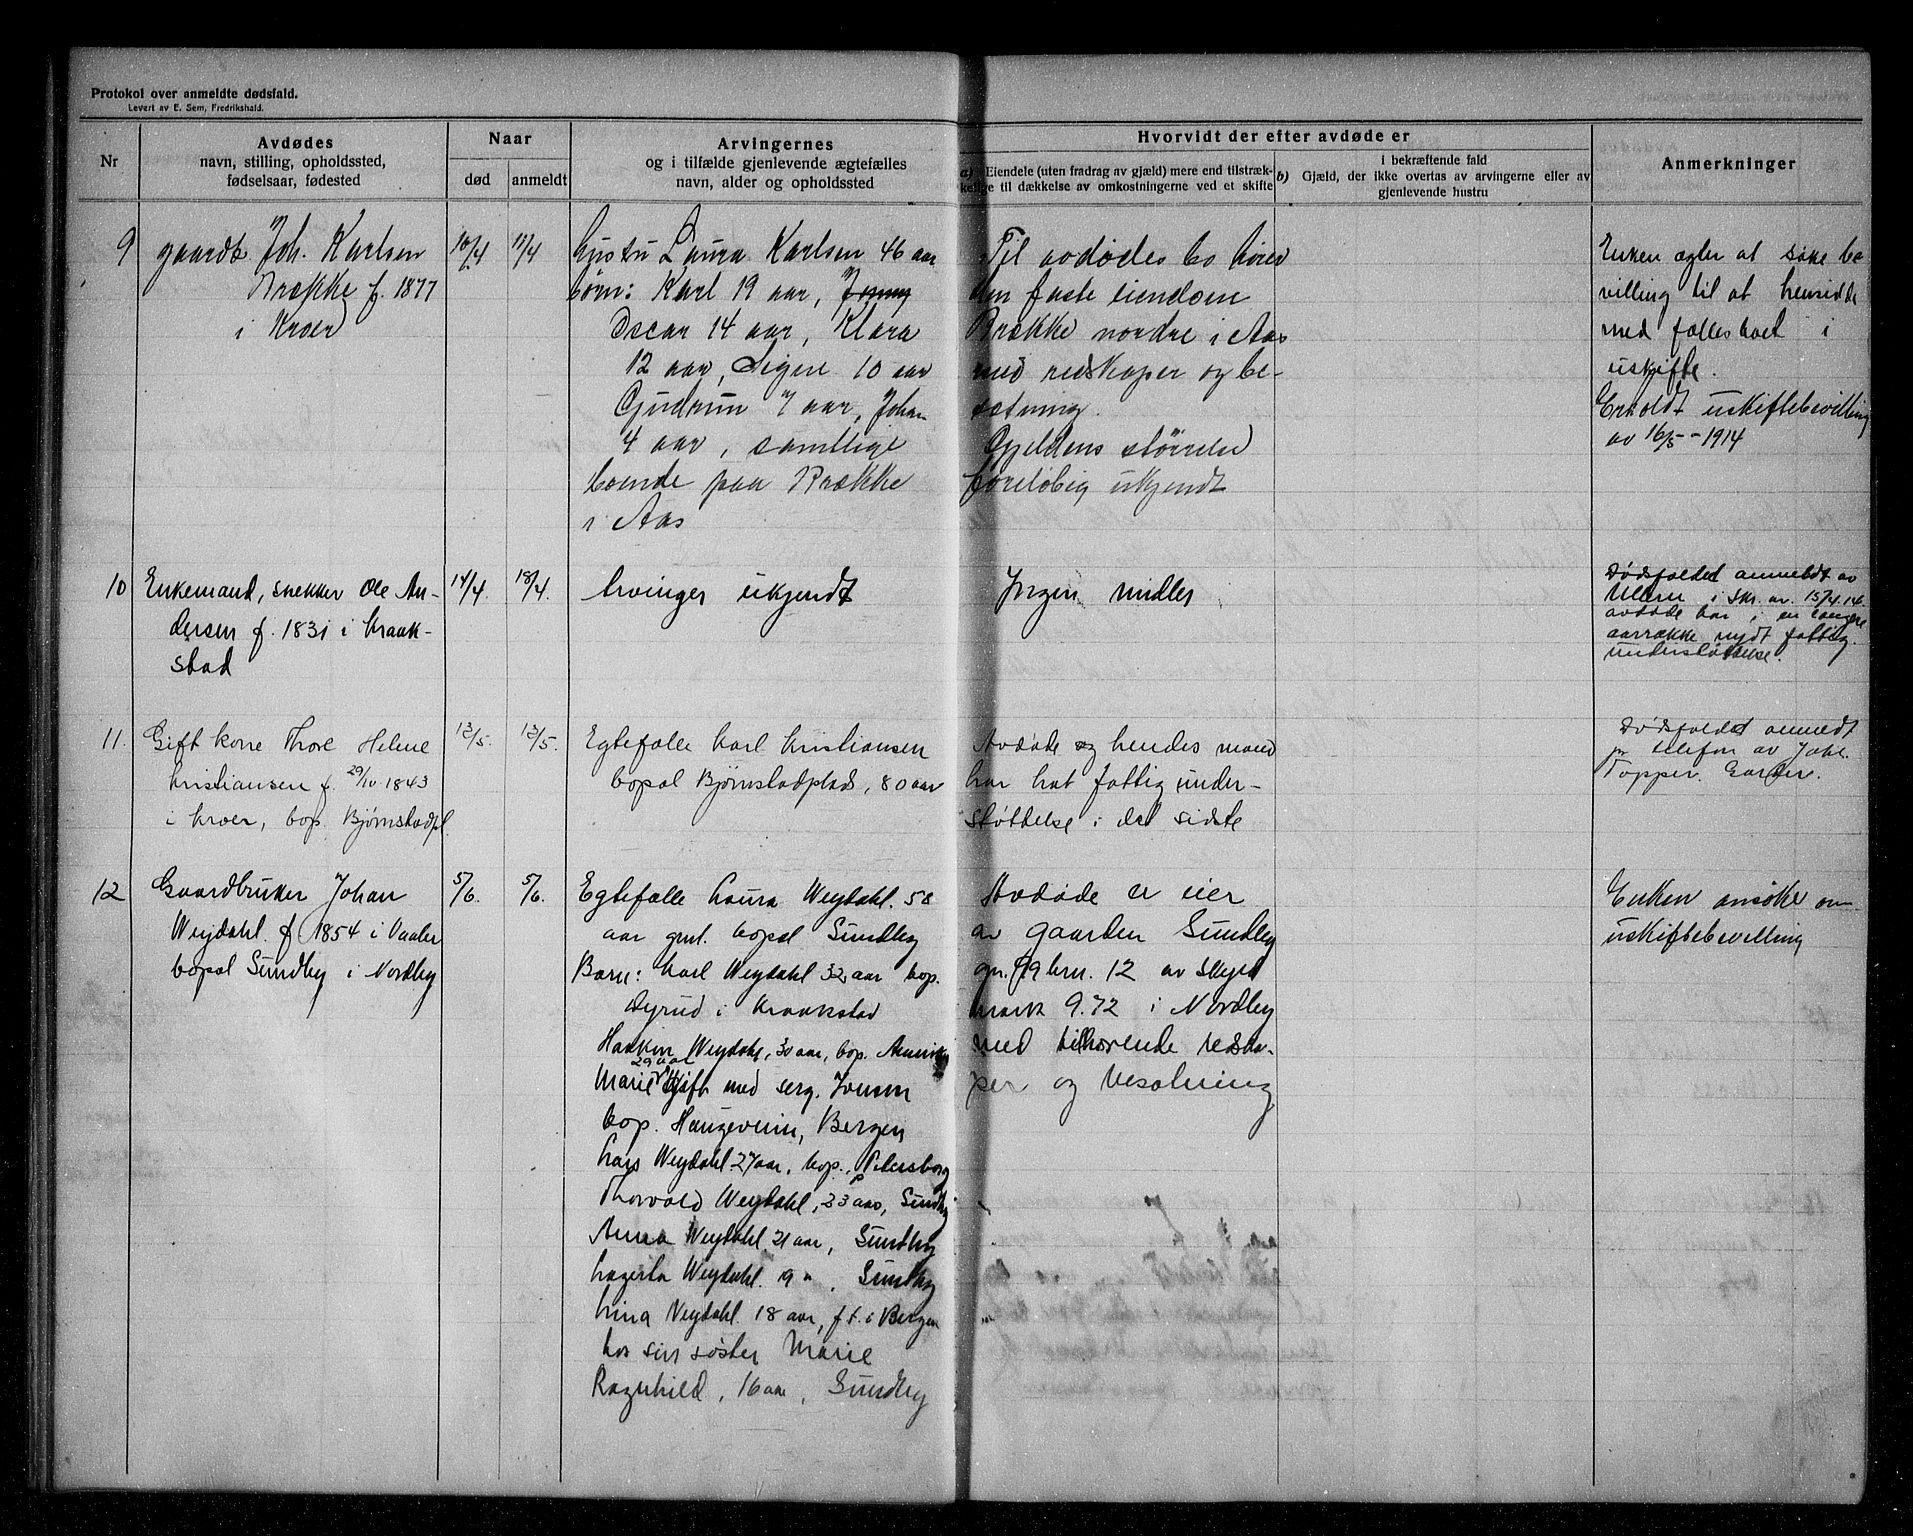 Protokol over anmeldte dødsfald.
Levert av E. Sem, Fredrikshald.
Nr
Avdødes
navn, stilling, opholdssted,
fødselsaar, fødested
Naar
død
anmeldt
Arvingernes
og i tilfælde gjenlevende ægtefælles
navn, alder og opholdssted
Hvorvidt der efter avdøde er
a) Eiendele (uten fradrag av gjæld) mere end tilstræk-
kelige til dækkelse av omkostningerne ved et skifte
i bekræftende fald
b) Gjæld, der ikke overtas av arvingerne eller av
gjenlevende hustru
Anmerkninger
9
gaardb. Joh. Karlsen
Brække f. 1877
i Kroer
10/4
11/4
Hustru Laura Karlsen 46 aar
børn: Karl 19 aar,
Oscar 14 aar, Klara
12 aar, Signe 10 aar
Gjudrun 7 aar, Johan
4 aar, samtlige
boende paa Brække
i Aas
Til avdødes bo hører
den faste eiendom
Brække nordre i Aas
med redskaper og be-
sætning.
Gjeldens størrelse
foreløbig ukjendt
Enken agter at søke be
villing til at hensidde
med fællesboet i
uskifte.
Erholdt uskiftebevilling
av 16/5 - 1914
10
Enkemand, snekker Ole An-
dersen f. 1831 i Kraak-
stad
14/4
18/4.
Arvinger ukjendt
Ingen midler
Dødsfaldet anmeldt av
i Skr. av. 15/4.14.
avdøde har i en længere
aarrække nydt fattig-
understøttelse.
11.
Gift kone Thore Helene
Kristiansen f. 29/10 1843
i Kroer, bop. Bjørnstadpl.
12/5.
13/5.
Egtefælle Karl Kristiansen
bopæl Bjørnstadplads, 80 aar
Avdøde og hendes mand
har hat fattig under-
støttelse i det sidste
Dødsfaldet anmeldt
pr telefon av Joh.
Topper. Garder.
12
Gaardbruker Johan
Weydahl. f 1854 i Vaaler
bopæl Sundby i Nordby
5/6.
5/6.
Egtefælle Laura Weydahl. 58
aar gml. bopæl Sundby
Barn: Karl Weydahl 32 aar bop.
Dyrud i Kraakstad
Haakon Weydahl, 30 aar, bop. Amerika
29 aar
Marie gift med serg. Jonsen
bop. Haugeveien, Bergen
Lars Weydahl 27 aar, bop. Petersborg
Thorvald Weydahl, 23 aar, Sundby
Anna Weydahl. 21 aar, Sundby
Lagerta Weydahl. 9 ", Sundby
Lina Weydahl. 18 aar, f.t. i Bergen
hos sin søster Marie
Ragnhild, 16 aar, Sundby
Avdøde er eier
av gaarden Sundby
gn. 99 brn. 12 av Skyld
mark 9.72 i Nordby
med tilhørende redska-
per og besætning
Enken ansøker om
uskiftebevilling